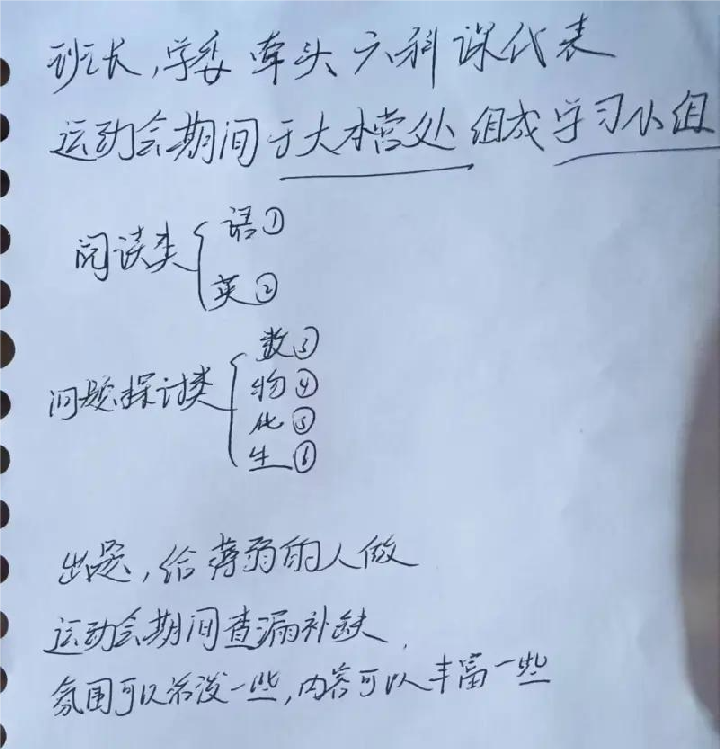 班长,学委 牵头 六科 课代表
运动会期间于大本营处 组成 学习小组
阅读类
语①
英②
问题探讨类
数③
物④
化⑤
生⑥
出题,给薄弱的人做
运动会期间查漏补缺,
氛围可以活泼一些,内容可以丰富一些